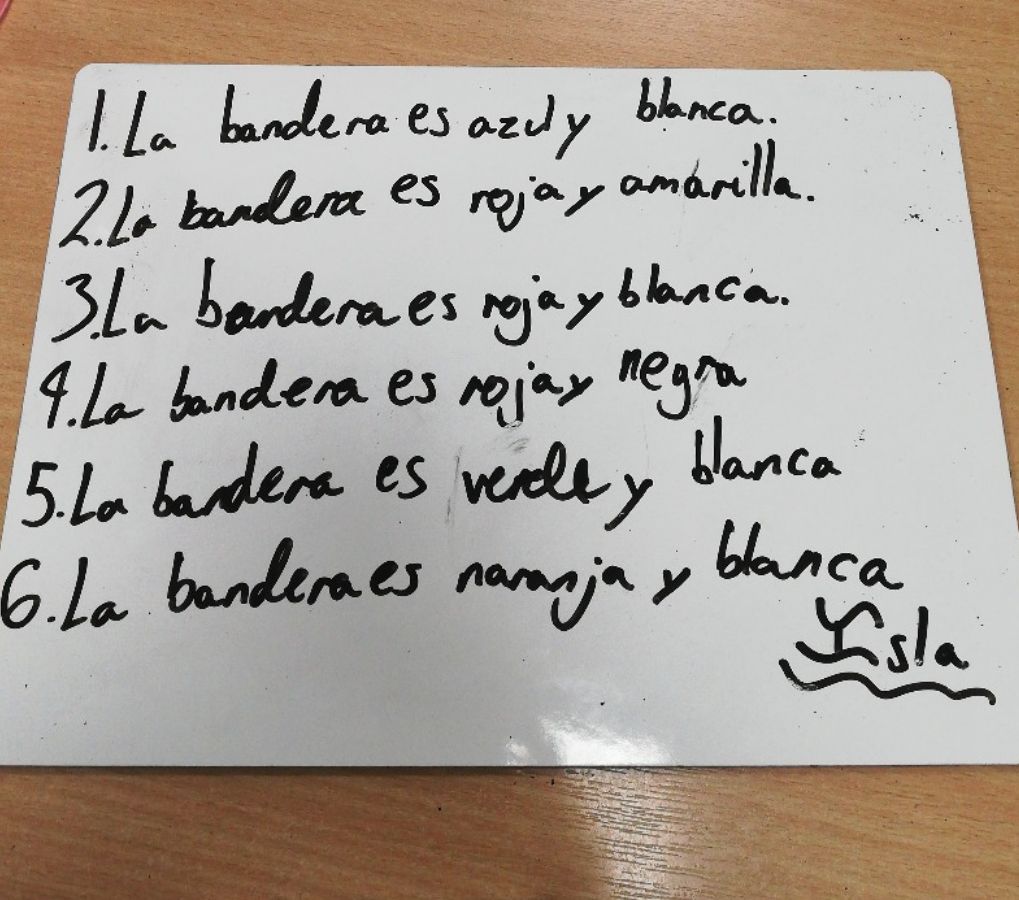 1. La bandera es azul y blanca.
2. La bandera es roja y amarilla.
3. La bandera es roja y blanca.
4. La bandera es roja y negra
5. La bandera es verde y blanca
6. La bandera es naranja y blanca
Isla